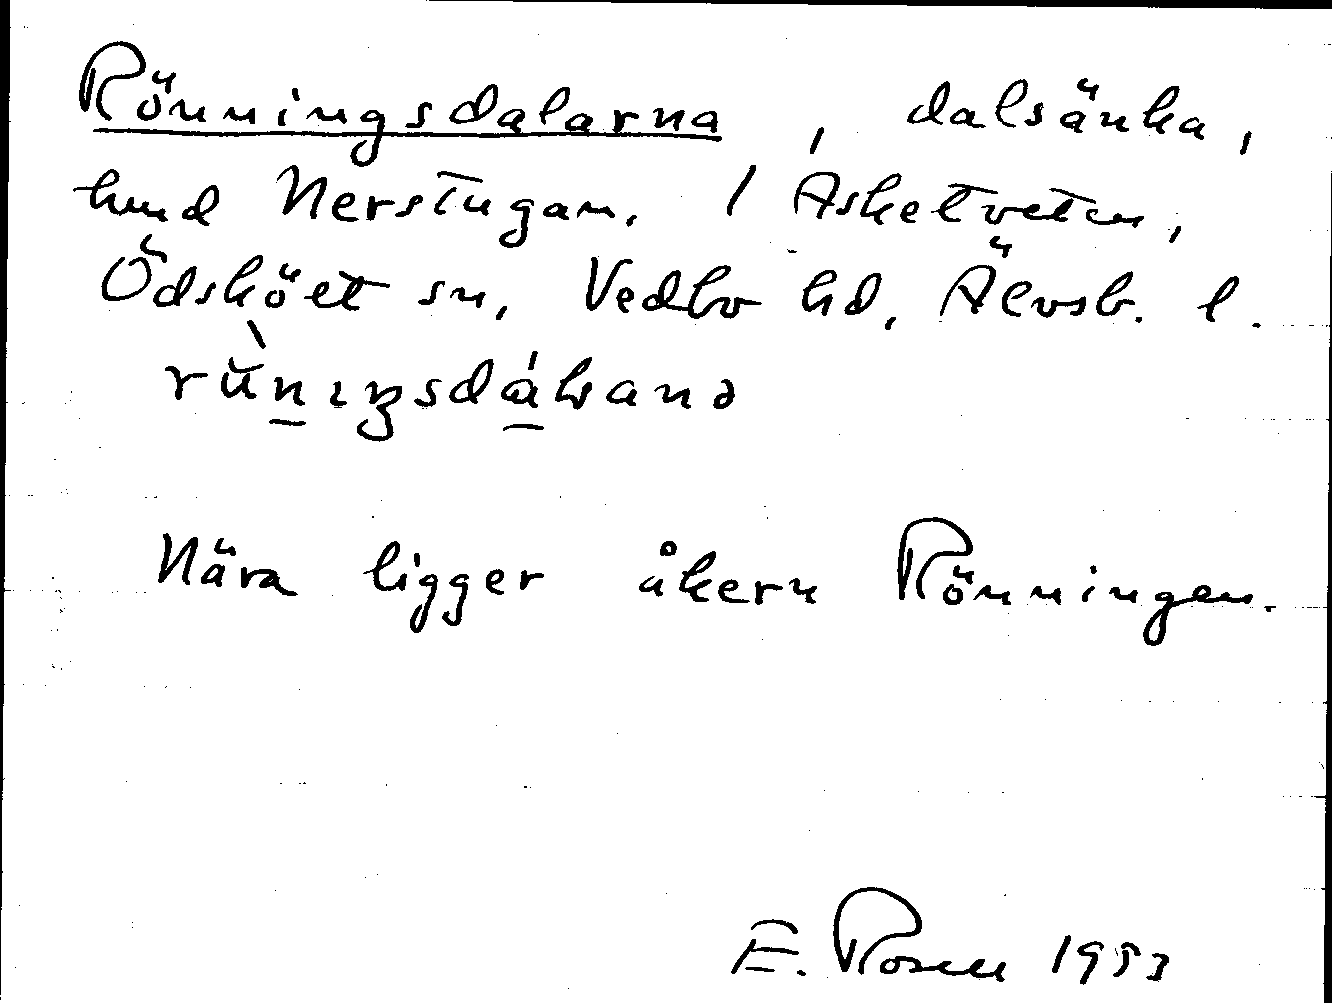 Rönningsdalarna, dalsänka,
hmd Nerstugan, 1 Asketveten,
Ödsköět sn, Vedbo hd, Älvsb. l.
Nära ligger åkern Rönningen.
E. Rosell 1953